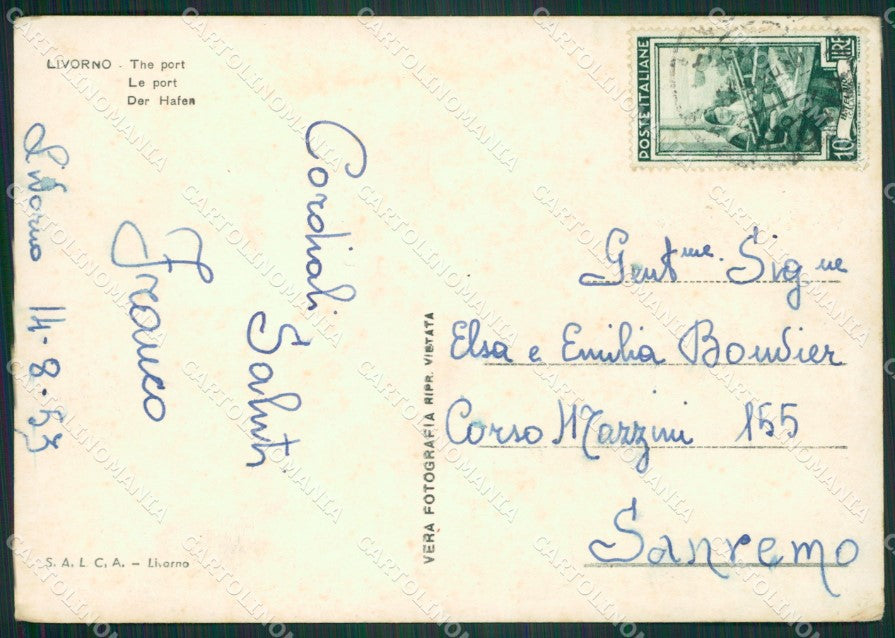 LIVORNO - The port
Le port
Der Hafen
Livorno 14-8-53
Cordiali
Saluti
Franco
S. A. L. C. A. – Livorno
VERA FOTOGRAFIA RIPR. VIETATA
POSTE ITALIANE
10 LIRE
Gent.me Sig.ne
Elsa e Emilia Bouvier
Corso Mazzini 155
Sanremo
CARTOLINOMANIA